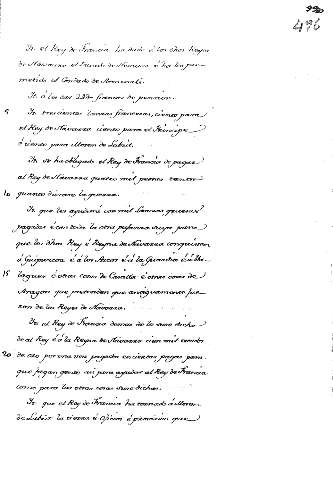 496
It. el Rey de Francia ha dado á los dhos Reyes
de Navarra el Ducado de Nemours é ha les pro-
metido el Condado de
It. á los dos mil francos de pension.
5 It. trecientas lanzas francesas, ciento para
el Rey de Navarra ciento para el Príncipe
é ciento para
It. Se ha obligado el Rey de Francia de pagar
al Rey de Navarra quatro mil peones tanto
10 quanto durare la guerra.
It. que les ayudará con mil lanzas gruesas
pagadas é con toda la otra pujanza suya para
que los dhos Rey é Reyna de Navarra conquisten
á Guipuzcoa é á los Arcos é á la Guardia é
15 é otras cosas de Castilla é otras cosas de
Aragon que pretenden que antiguamente fue-
ron de los Reyes de Navarra.
It. el Rey de Francia demas de lo suso dicho
da al Rey é á la Reyna de Navarra cien mil escudos
20 de oro por una vez pagados en ciertas pagas para
que fagan gente así para ayudar al Rey de Francia
como para las otras cosas suso dichas.
It. que el Rey de Francia ha tornado á
de Labrit las tierras é oficios é pension que